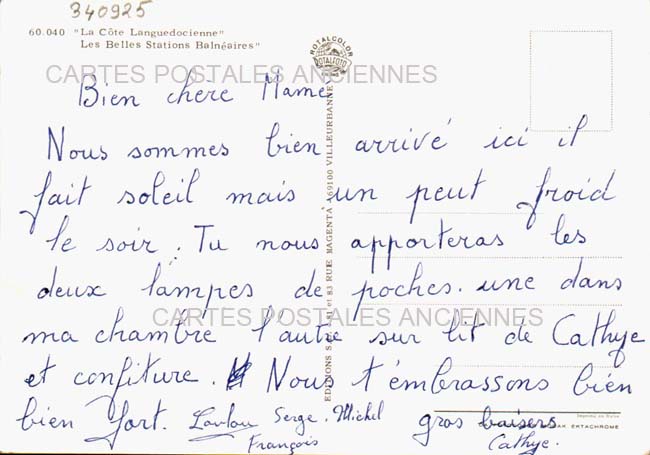 340925
60.040 "La Côte Languedocienne"
Les Belles Stations Balnéaires"
ROTALCOLOR
ROTALFOTO
CARTES POSTALES ANCIENNES
Bien chère Mamé
Nous sommes bien arrivé ici il
fait soleil mais un peut froid
le soir. Tu nous apporteras les
deux lampes de poches. une dans
ma chambre l'autre sur lit de Cathye
CARTES POSTALES ANCIENNES
et confiture. Nous t'embrassons bien
bien fort. Loulou Serge. Michel gros baisers
François Cathye.
81 et 83 RUE MAGENTA 69100 VILLEURBANNE
EKTACHROME